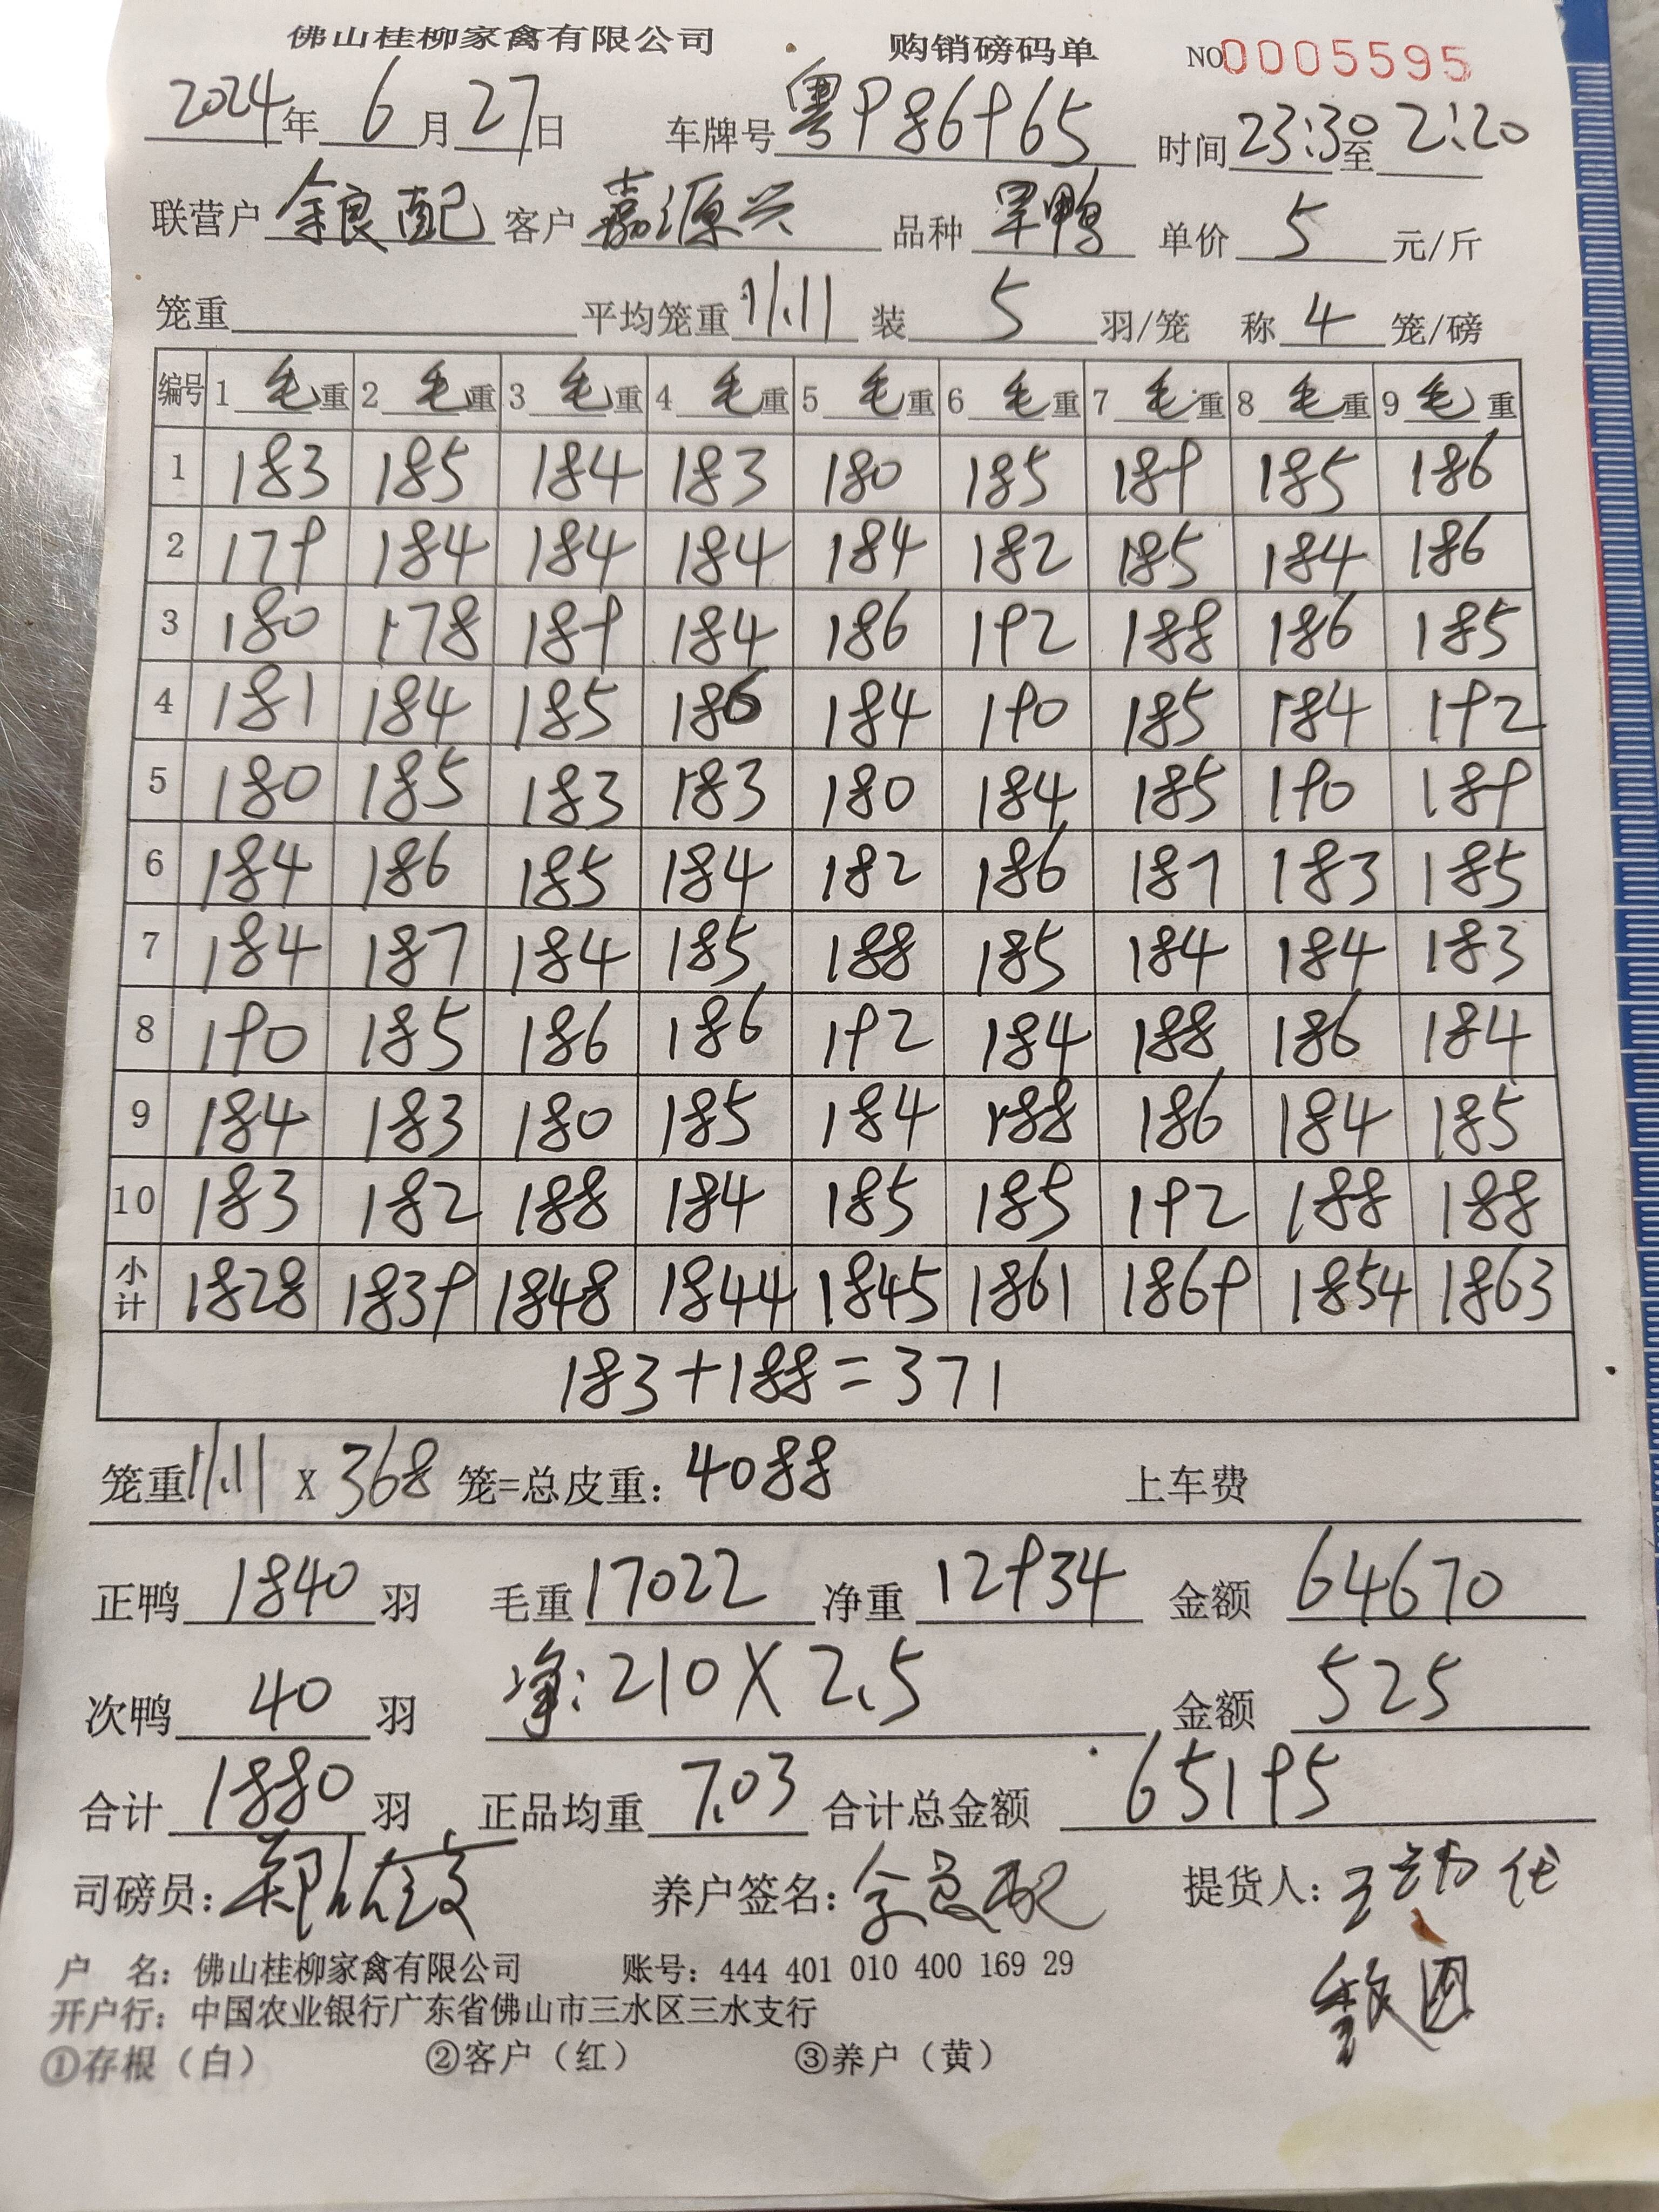 佛山桂柳家禽有限公司 购销磅码单 NO0005595
2024年 6月27日 车牌号 粤P86965 时间 23:30至 2:20
联营户 余良配 客户 嘉源兴 品种 旱鸭 单价 5 元/斤
笼重 平均笼重 11.11 装 5 羽/笼 称 4 笼/磅
编号 1 毛重 2 毛重 3 毛重 4 毛重 5 毛重 6 毛重 7 毛重 8 毛重 9 毛重
1 183 185 184 183 180 185 189 185 186
2 179 184 184 184 184 182 185 184 186
3 180 178 189 184 186 192 188 186 185
4 181 184 185 186 184 190 185 184 192
5 180 185 183 183 180 184 185 190 189
6 184 186 185 184 182 186 187 183 185
7 184 187 184 185 188 185 184 184 183
8 190 185 186 186 192 184 188 186 184
9 184 183 180 185 184 188 186 184 185
10 183 182 188 184 185 185 192 188 188
小计 1828 1839 1848 1844 1845 1861 1869 1854 1863
183+188=371
笼重11.11 X 368 笼=总皮重: 4088 上车费
正鸭 1840 羽 毛重 17022 净重 12934 金额 64670
次鸭 40 羽 净:210X2.5 金额 525
合计 1880 羽 正品均重 7.03 合计总金额 65195
司磅员: 养户签名: 余良配 提货人:
户 名: 佛山桂柳家禽有限公司 账号: 444 401 010 400 169 29
开户行: 中国农业银行广东省佛山市三水区三水支行
①存根(白) ②客户(红) ③养户(黄)